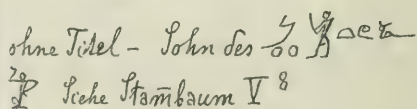 ohne Titel – Sohn des
Siehe Stam̄baum V 8